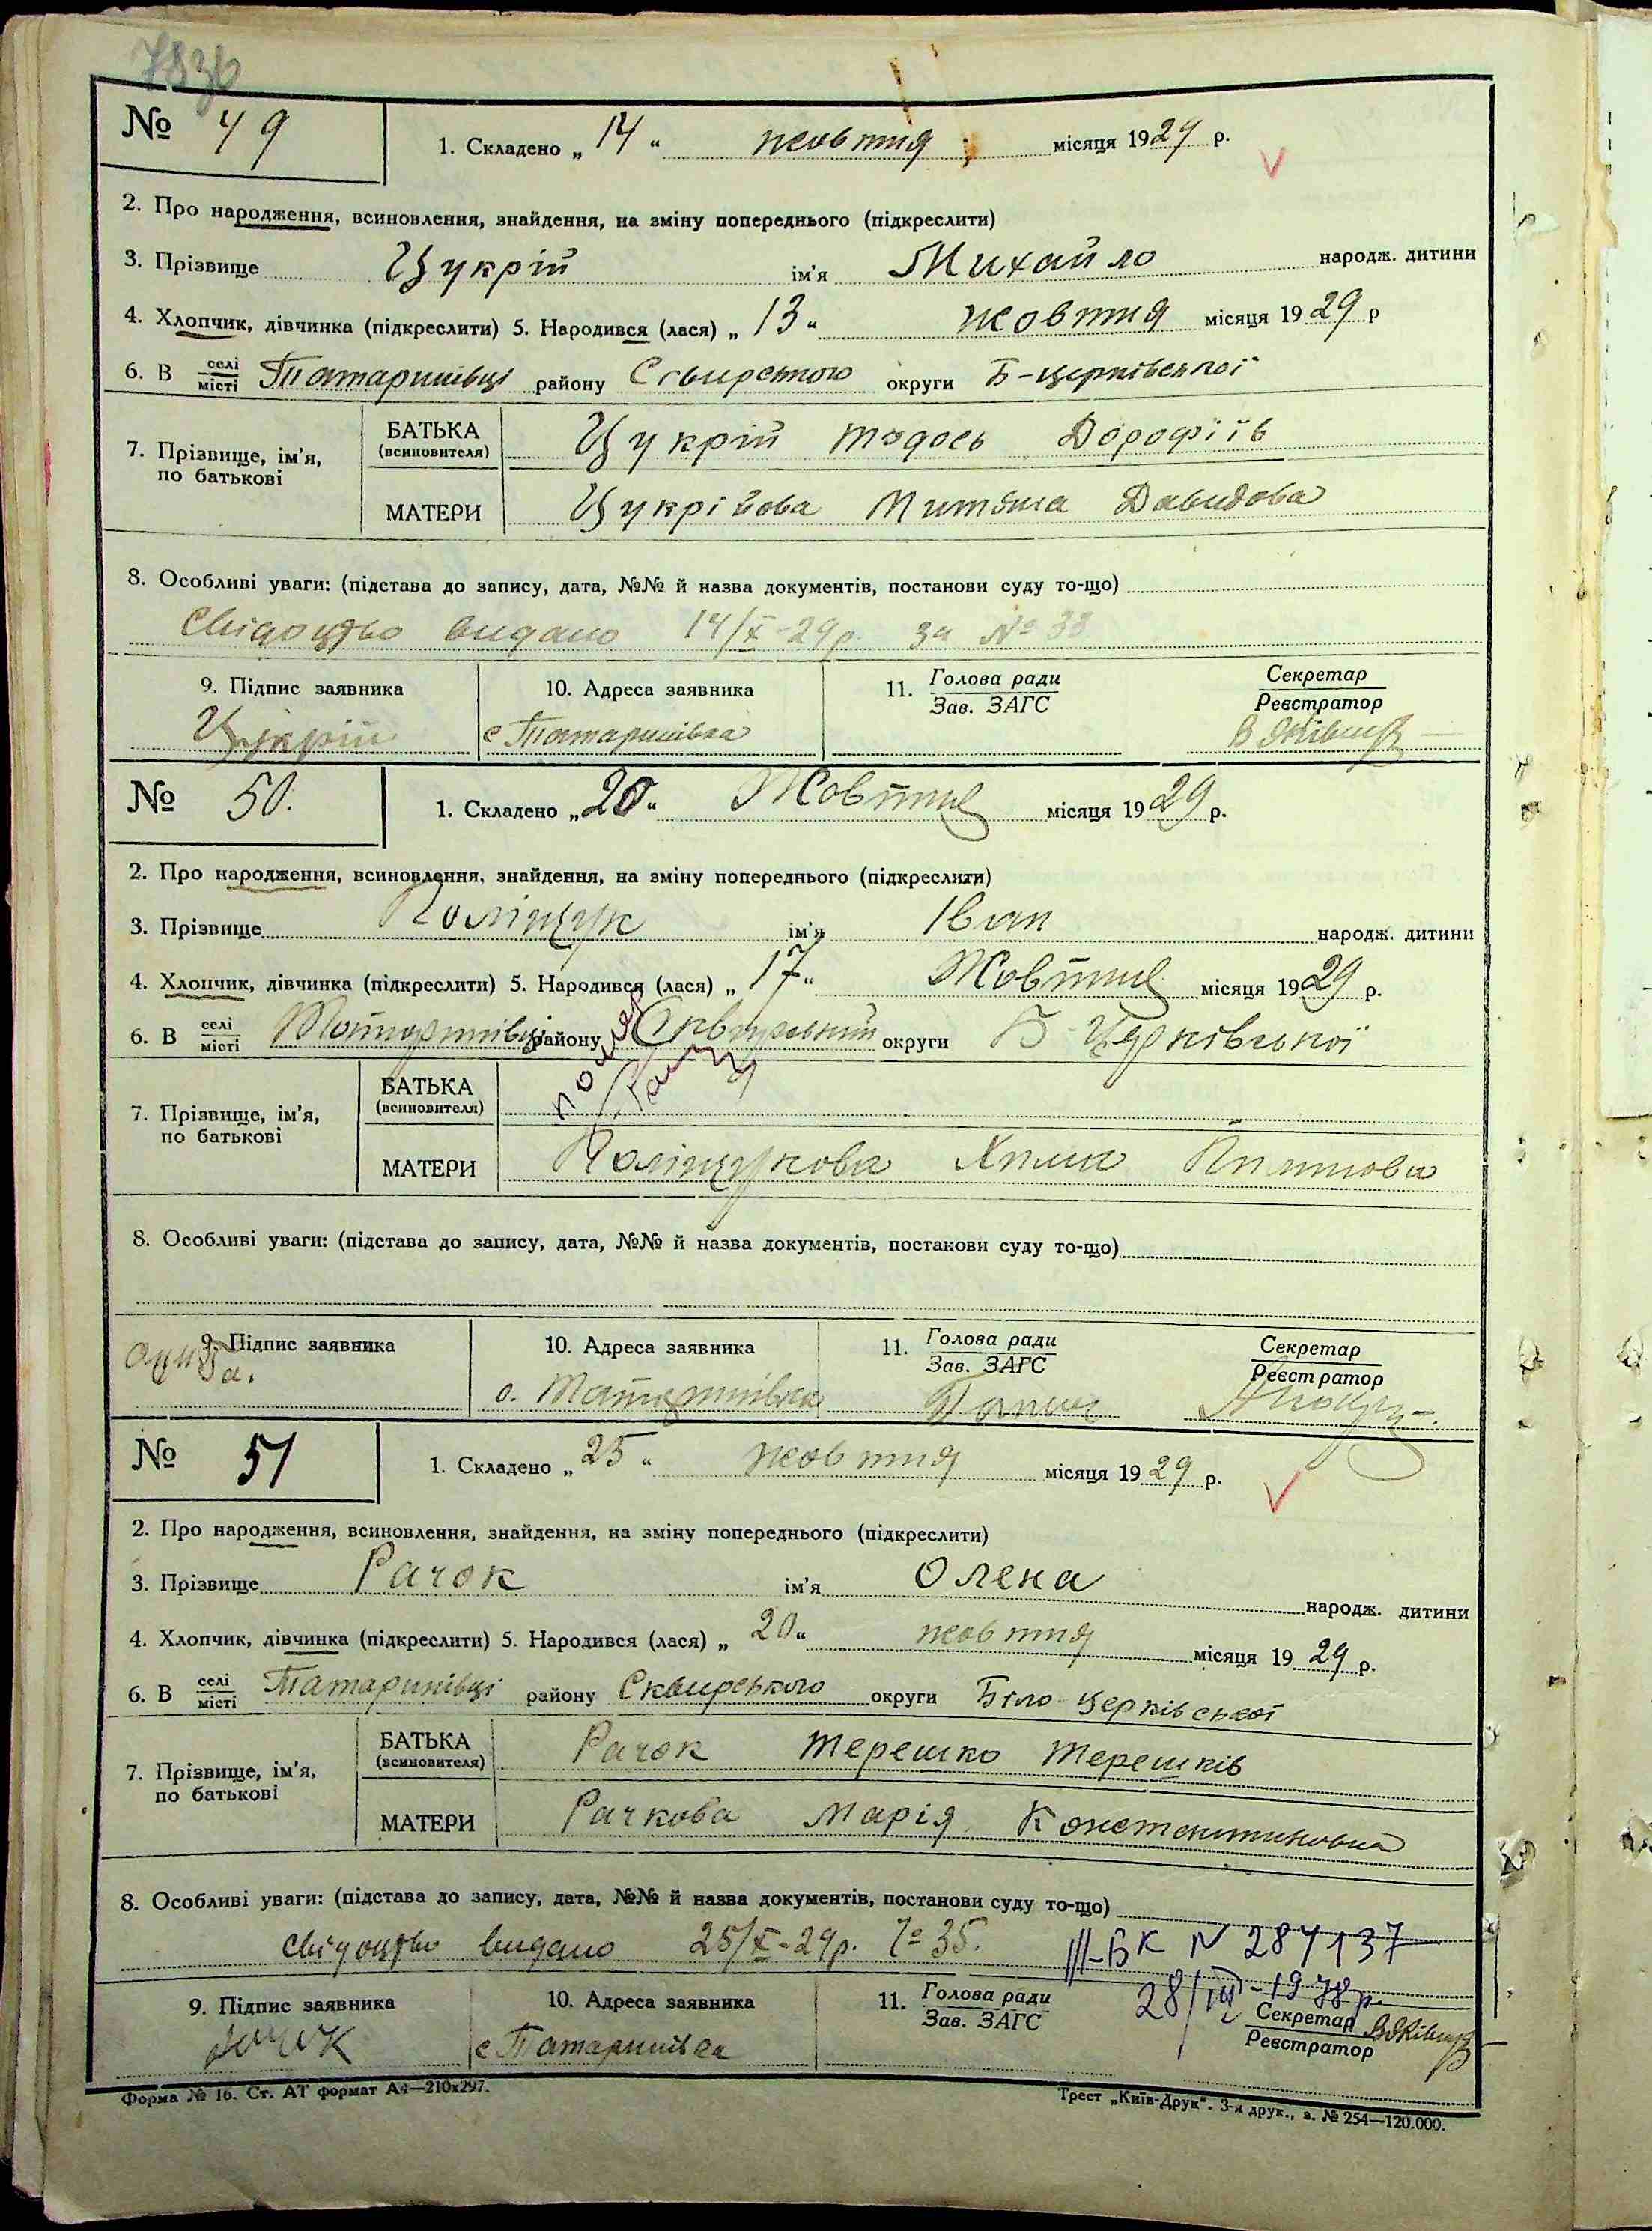 7836
№ 49
1. Складено „ 14 “ жовтня місяця 1929 р.
2. Про народження, всиновлення, знайдення, на зміну попереднього (підкреслити)
3. Прізвище Цукрій ім'я Михайло народж. дитини
4. Хлопчик, дівчинка (підкреслити) 5. Народився (лася) „ 13 “ жовтня місяця 1929 р
6. В селі місті Татаринівці району Сквирського округи Б-церківської
7. Прізвище, ім'я, по батькові
БАТЬКА (всиновителя) Цукрій тодось Дорофіїв
МАТЕРИ Цукрійова Давидова
8. Особливі уваги: (підстава до запису, дата, №№ й назва документів, постанови суду то-що)
свідоцтво видано 14/X-29р. за № 33
9. Підпис заявника
10. Адреса заявника
11. Голова ради Зав. ЗАГС
Секретар Реєстратор
Цукрій с Татаринівка
№ 50.
1. Складено „ 20 “ Жовтня місяця 1929 р.
2. Про народження, всиновлення, знайдення, на зміну попереднього (підкреслити)
3. Прізвище Поліщук ім'я Іван народж. дитини
4. Хлопчик, дівчинка (підкреслити) 5. Народився (лася) „ 17 “ Жовтня місяця 1929 р.
6. В селі місті Татаринівці району Сквирський округи Б-Церківської
помер
7. Прізвище, ім'я, по батькові
БАТЬКА (всиновителя)
МАТЕРИ Поліщукова
8. Особливі уваги: (підстава до запису, дата, №№ й назва документів, постанови суду то-що)
9. Підпис заявника
10. Адреса заявника
11. Голова ради Зав. ЗАГС
Секретар Реєстратор
с. Татаринівка
№ 51
1. Складено „ 25 “ жовтня місяця 1929 р.
2. Про народження, всиновлення, знайдення, на зміну попереднього (підкреслити)
3. Прізвище Рачок ім'я Олена народж. дитини
4. Хлопчик, дівчинка (підкреслити) 5. Народився (лася) „ 20 “ жовтня місяця 1929 р.
6. В селі місті Татаринівці району Сквирського округи Біло-церківської
7. Прізвище, ім'я, по батькові
БАТЬКА (всиновителя) Рачок терешко терешків
МАТЕРИ Рачкова Марія Константиновна
8. Особливі уваги: (підстава до запису, дата, №№ й назва документів, постанови суду то-що)
свідоцтво видано 25/X-29р. № 35.
III-БК N 287137
28/III-1978р.
9. Підпис заявника
10. Адреса заявника
11. Голова ради Зав. ЗАГС
Секретар Реєстратор
с Татаринівка
Форма № 16. Ст. АТ формат А4—210x297.
Трест „Київ-Друк“. 3-я друк., з. № 254—120.000.